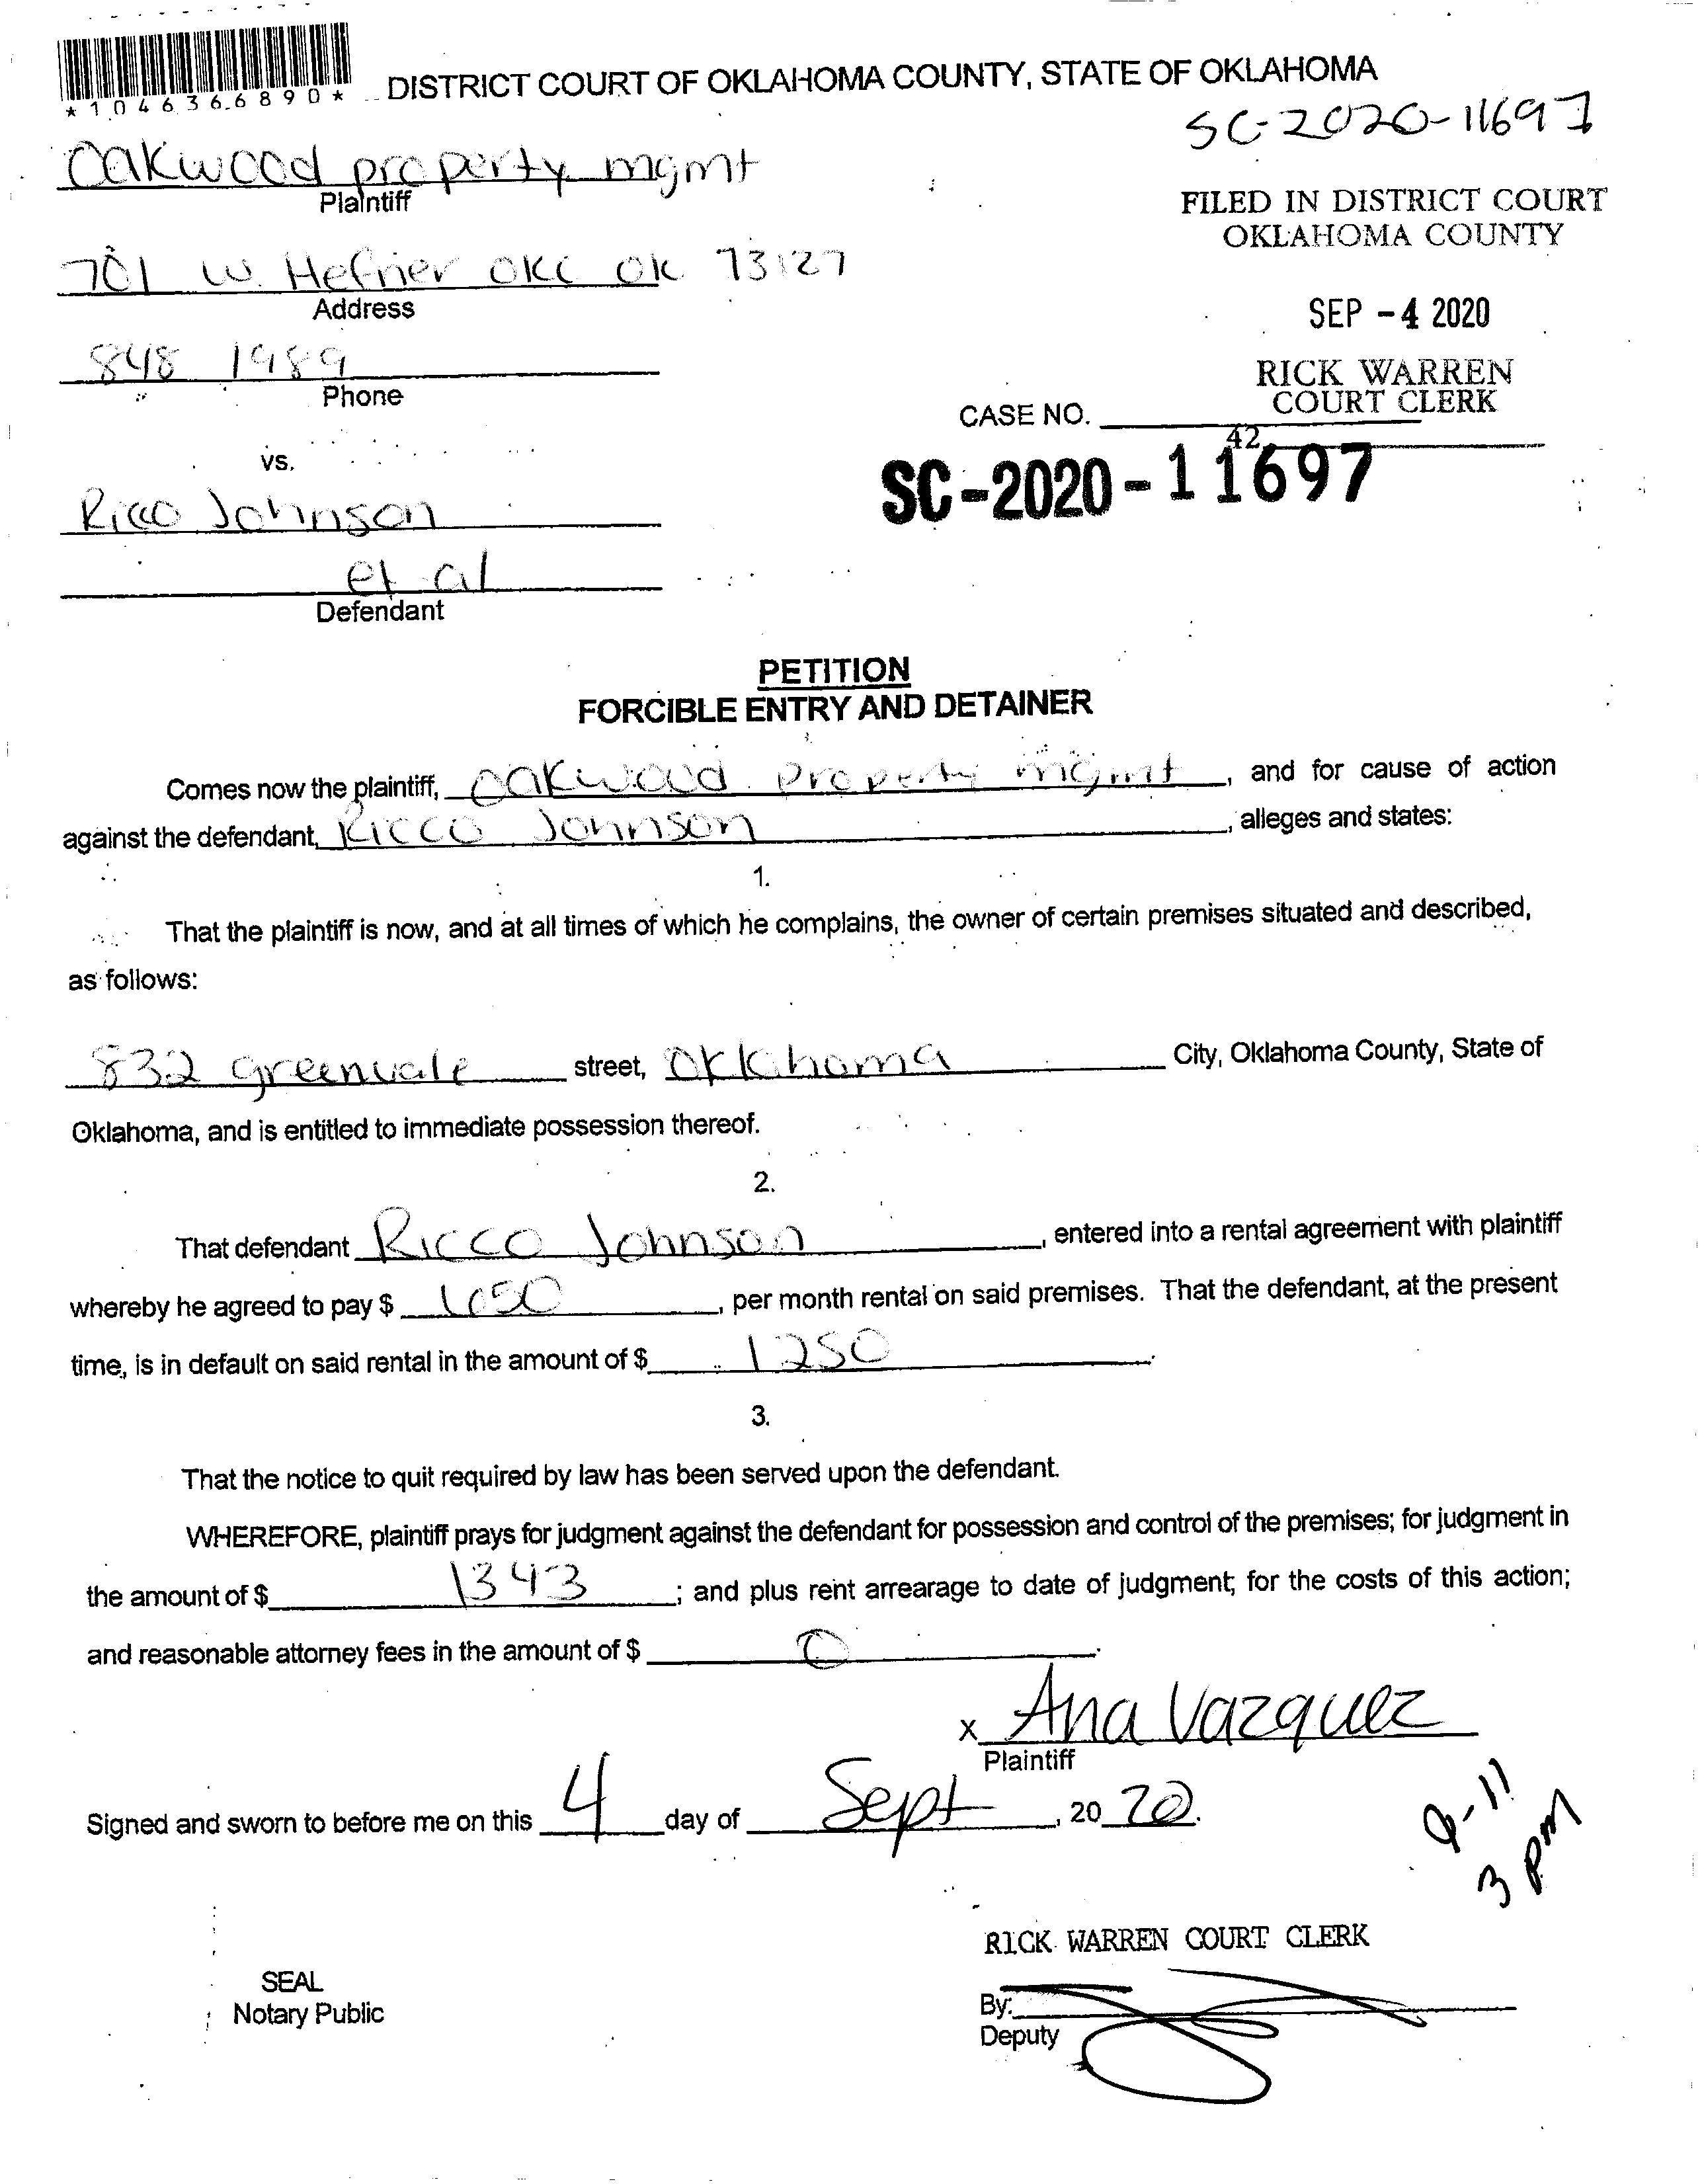 *1046366890*
DISTRICT COURT OF OKLAHOMA COUNTY, STATE OF OKLAHOMA
SC-2020-11697
Oakwood property mgmt
Plaintiff
FILED IN DISTRICT COURT
OKLAHOMA COUNTY
701 W. Hefner OKC OK 73127
Address
SEP -4 2020
848 1989
Phone
RICK WARREN
COURT CLERK
CASE NO.
42
vs.
SC-2020-11697
Ricco Johnson
et al
Defendant
PETITION
FORCIBLE ENTRY AND DETAINER
Comes now the plaintiff, Oakwood property mgmt, and for cause of action
against the defendant, Ricco Johnson, alleges and states:
1.
That the plaintiff is now, and at all times of which he complains, the owner of certain premises situated and described,
as follows:
832 greenvale street, Oklahoma City, Oklahoma County, State of
Oklahoma, and is entitled to immediate possession thereof.
2.
That defendant Ricco Johnson, entered into a rental agreement with plaintiff
whereby he agreed to pay $ 1050, per month rental on said premises. That the defendant, at the present
time, is in default on said rental in the amount of $ 1250.
3.
That the notice to quit required by law has been served upon the defendant.
WHEREFORE, plaintiff prays for judgment against the defendant for possession and control of the premises; for judgment in
the amount of $ 1343; and plus rent arrearage to date of judgment; for the costs of this action;
and reasonable attorney fees in the amount of $ 0.
x Ana Vazquez
Plaintiff
Signed and sworn to before me on this 4 day of Sept, 2020.
9-11
3 pm
RICK WARREN COURT CLERK
SEAL
Notary Public
By:
Deputy